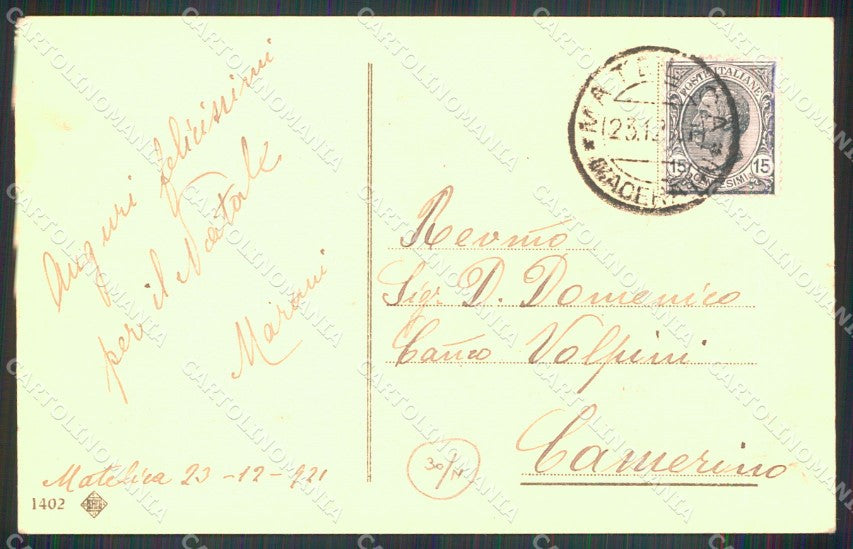 Auguri felicissimi
per il Natale
Marani
Matelica 23-12-921
1402
MATELICA
23.12.21
* (MACERATA) *
POSTE ITALIANE
15 CENTESIMI 15
Revmo
Sigr. D. Domenico
Canco Volpini
Camerino
CARTOLINOMANIA